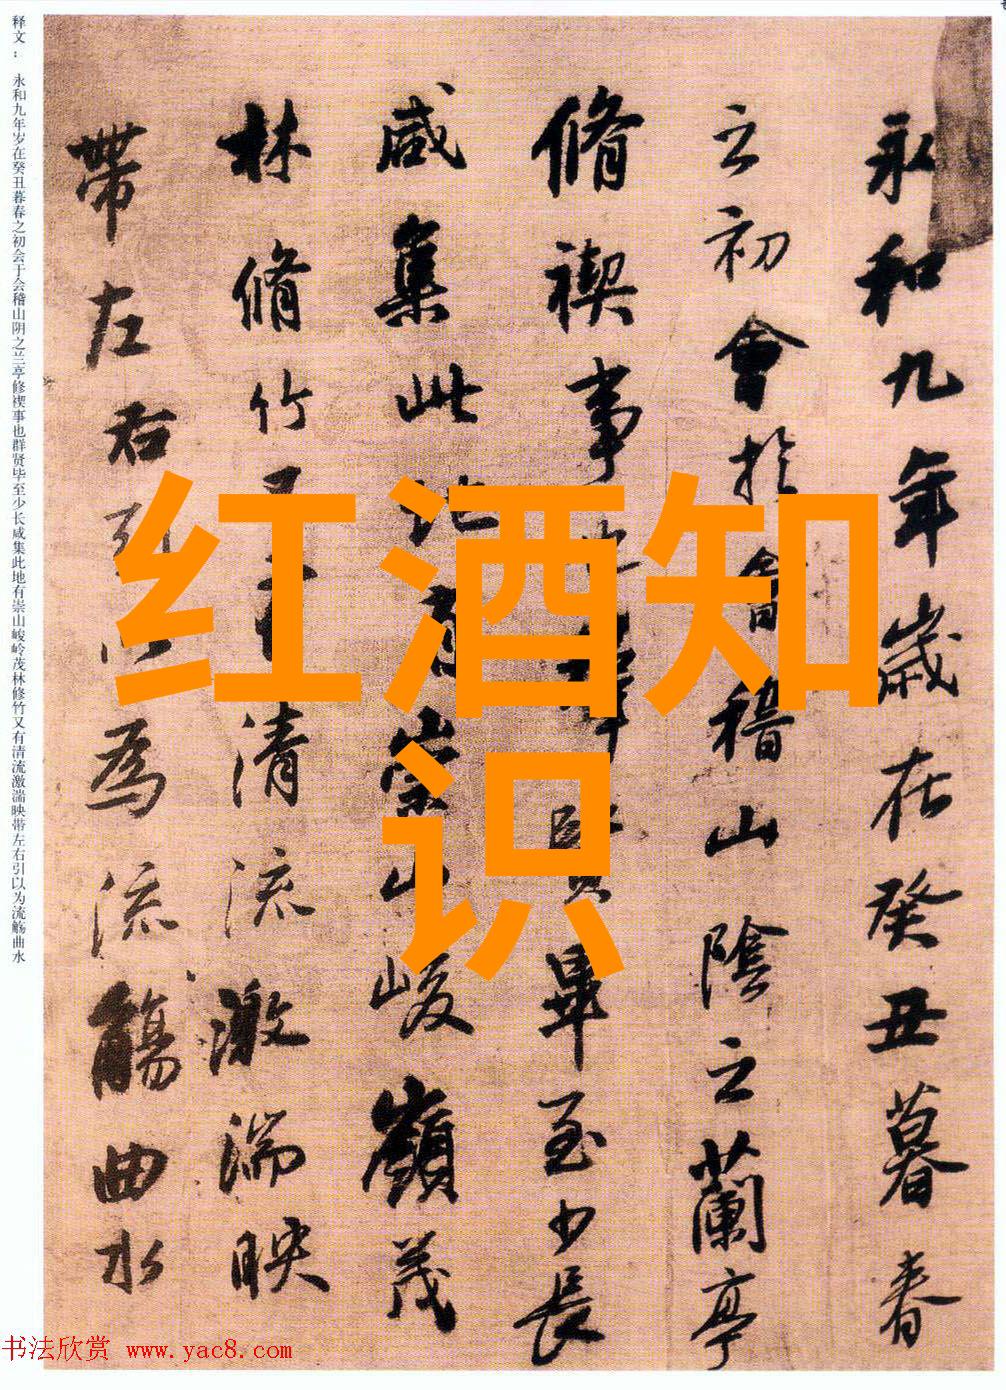 永和九年歲在癸丑暮春
之初會於會稽山陰之蘭亭
脩禊事也羣賢畢至少長
咸集此地有崇山峻嶺茂
林脩竹又有清流激湍映
帶左右引以為流觴曲水
释文： 永和九年岁在癸丑暮春之初会于会稽山阴之兰亭修禊事也群贤毕至少长咸集此地有崇山峻岭茂林修竹又有清流激湍映带左右引以为流觞曲水
红酒知
识
书法欣赏 www.yac8.com